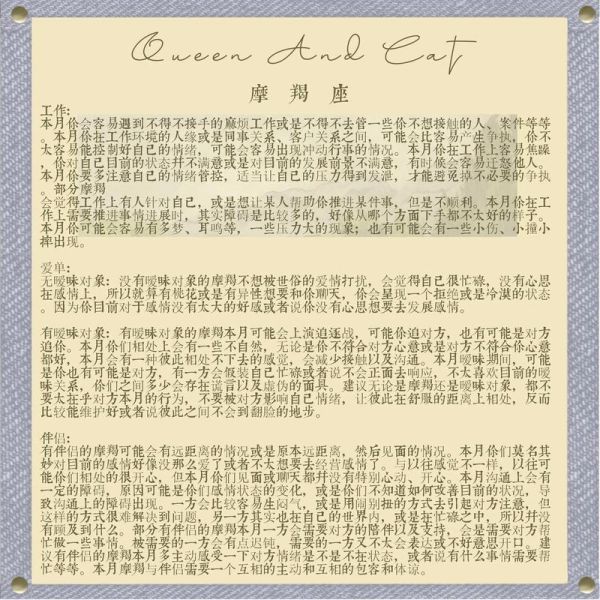 Queen And Cat
摩羯座
工作:
本月你会容易遇到不得不接手的麻烦工作或是不得不去管一些你不想接触的人、案件等等
。本月你在工作环境的人缘或是同事关系、客户关系之间，可能会比容易产生争执，你不
太容易能控制好自己的情绪，可能会容易出现冲动行事的情况。本月你在工作上容易焦躁
，你对自己目前的状态并不满意或是对目前的发展前景不满意，有时候会容易迁怒他人。
本月你要多注意自己的情绪管控，适当让自己的压力得到发泄，才能避免掉不必要的争执
。部分摩羯
会觉得工作上有人针对自己，或是想让某人帮助你推进某件事，但是不顺利。本月你在工
作上需要推进事情进展时，其实障碍是比较多的，好像从哪个方面下手都不太好的样子。
本月你可能会容易有多梦、耳鸣等，一些压力大的现象；也有可能会有一些小伤、小撞小
摔出现。
爱单:
无暧昧对象：没有暧昧对象的摩羯不想被世俗的爱情打扰，会觉得自己很忙碌，没有心思
在感情上，所以就算有桃花或是有异性想要和你聊天，你会呈现一个拒绝或是冷漠的状态
。因为你目前对于感情没有太大的好感或者说你没有心思想要去发展感情。
有暧昧对象：有暧昧对象的摩羯本月可能会上演追逐战，可能你追对方，也有可能是对方
追你。本月你们相处上会有一些不自然，无论是你不符合对方心意或是对方不符合你心意
都好，本月会有一种彼此相处不下去的感觉，会减少接触以及沟通。本月暧昧期间，可能
是你也有可能是对方，有一方会假装自己忙碌或者说不会正面去响应，不太喜欢目前的暧
昧关系，你们之间多少会存在谎言以及虚伪的面具。建议无论是摩羯还是暧昧对象，都不
要太在乎对方本月的行为，不要被对方影响自己情绪，让彼此在舒服的距离上相处，反而
比较能维护好或者说彼此之间不会到翻脸的地步。
伴侣:
有伴侣的摩羯可能会有远距离的情况或是原本远距离，然后见面的情况。本月你们莫名其
妙对目前的感情好像没那么爱了或者不太想要去经营感情了。与以往感觉不一样，以往可
能你们相处的很开心，但本月你们见面或聊天都并没有特别心动、开心。本月沟通上会有
一定的障碍，原因可能是你们感情状态的变化，或是你们不知道如何改善目前的状况，导
致沟通上的障碍出现。一方会比较容易生闷气，或是用闹别扭的方式去引起对方注意，但
这样的方式很难解决到问题，另一方其实也在自己的世界内，或是在忙碌之中，所以并没
有顾及到什么。部分有伴侣的摩羯本月一方会需要对方的陪伴以及支持，会是需要对方帮
忙做一些事情。被需要的一方会有点迟钝，需要的一方又不太会表达或不好意思开口。建
议有伴侣的摩羯本月多主动感受一下对方情绪是不是不在状态，或者说有什么事情需要帮
忙等等。本月摩羯与伴侣需要一个互相的主动和互相的包容和体谅。